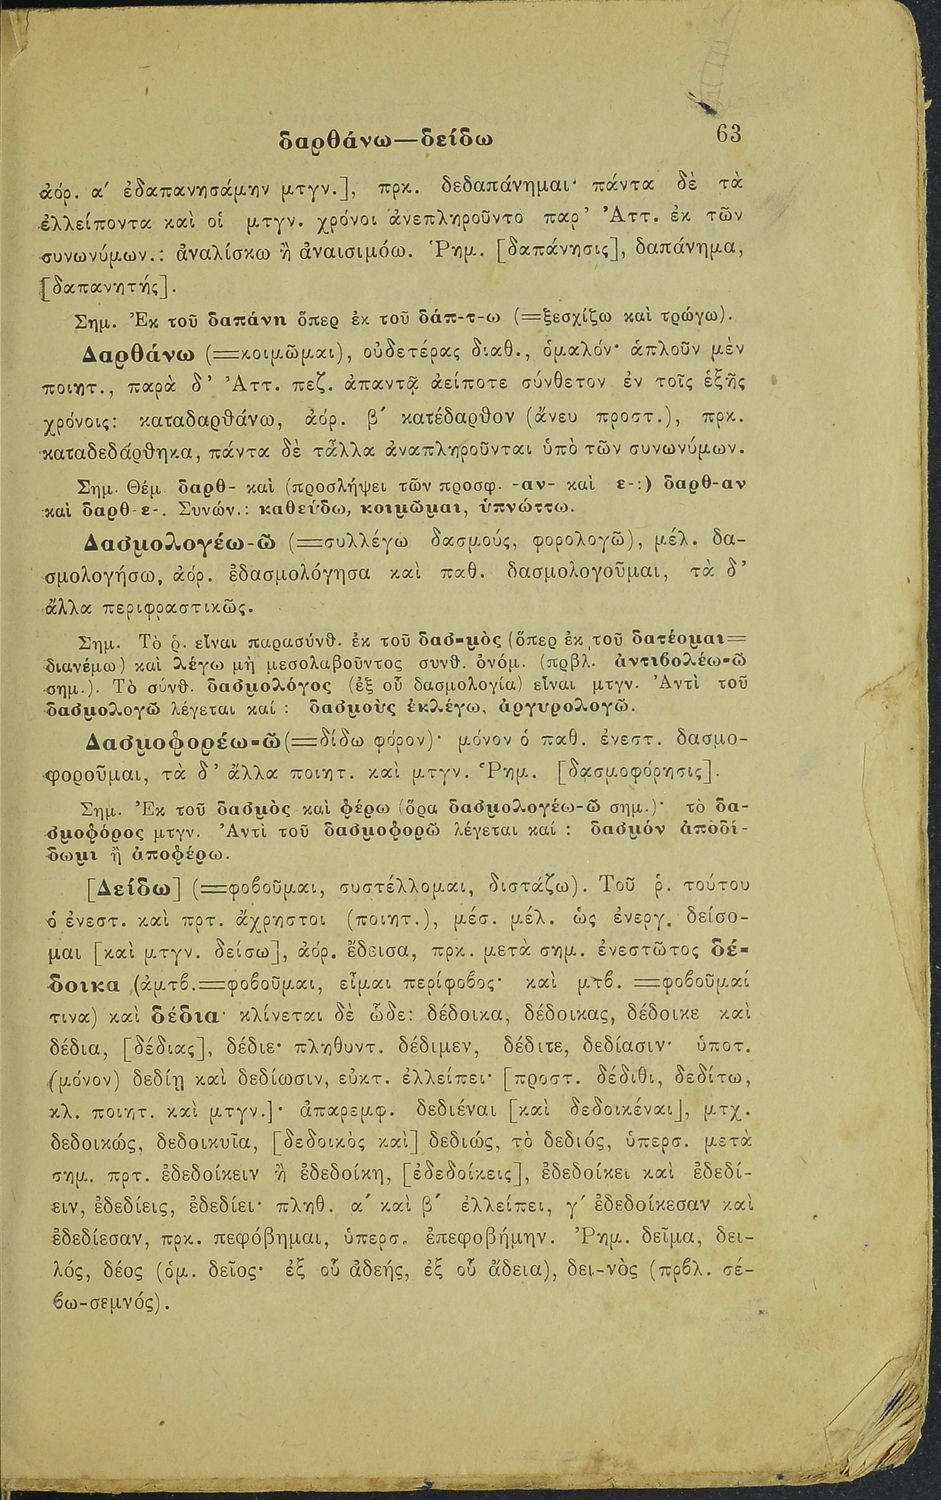 δαρθάνω—δείδω 63
ἀόρ. α΄ ἐδαπανησάμην μτγν.], πρκ. δεδαπάνημαι· πάντα δὲ τὰ
ἐλλείποντα καὶ οἱ μτγν. χρόνοι ἀνεπληροῦντο παρ' Ἀττ. ἐκ τῶν
συνωνύμων.: ἀναλίσκω ἢ ἀναισιμόω. Ῥημ. [δαπάνησις], δαπάνημα,
[δαπανητής].
Σημ. Ἐκ τοῦ δαπάνη ὅπερ ἐκ τοῦ δάπ-τ-ω (=ξεσχίζω καὶ τρώγω).
Δαρθάνω (=κοιμῶμαι), οὐδετέρας διαθ., ὁμαλόν· ἁπλοῦν μὲν
ποιητ., παρὰ δ' Ἀττ. πεζ. ἀπαντᾷ ἀείποτε σύνθετον ἐν τοῖς ἑξῆς
χρόνοις: καταδαρθάνω, ἀόρ. β΄ κατέδαρθον (ἄνευ προστ.), πρκ.
καταδεδάρθηκα, πάντα δὲ τἆλλα ἀναπληροῦνται ὑπὸ τῶν συνωνύμων.
Σημ. Θέμ. δαρθ- καὶ (προσλήψει τῶν προσφ. -αν- καὶ ε-:) δαρθ-αν
καὶ δαρθ-ε-. Συνών.: καθεύδω, κοιμῶμαι, ὑπνώττω.
Δασμολογέω-ῶ (=συλλέγω δασμούς, φορολογῶ), μέλ. δα-
σμολογήσω, ἀόρ. ἐδασμολόγησα καὶ παθ. δασμολογοῦμαι, τὰ δ'
ἄλλα περιφραστικῶς.
Σημ. Τὸ ῥ. εἶναι παρασύνθ. ἐκ τοῦ δασ-μὸς (ὅπερ ἐκ τοῦ δατέομαι=
διανέμω) καὶ λέγω μὴ μεσολαβοῦντος συνθ. ὀνόμ. (πρβλ. ἀντιβολέω-ῶ
σημ.). Τὸ σύνθ. δασμολόγος (ἐξ οὗ δασμολογία) εἶναι μτγν. Ἀντὶ τοῦ
δασμολογῶ λέγεται καί : δασμοὺς ἐκλέγω, ἀργυρολογῶ.
Δασμοφορέω-ῶ(=δίδω φόρον)· μόνον ὁ παθ. ἐνεστ. δασμο-
φοροῦμαι, τὰ δ' ἄλλα ποιητ. καὶ μτγν. Ῥημ. [δασμοφόρησις].
Σημ. Ἐκ τοῦ δασμὸς καὶ φέρω (ὅρα δασμολογέω-ῶ σημ.)· τὸ δα-
σμοφόρος μτγν. Ἀντὶ τοῦ δασμοφορῶ λέγεται καί : δασμόν ἀποδί-
δωμι ἢ ἀποφέρω.
[Δείδω] (=φοβοῦμαι, συστέλλομαι, διστάζω). Τοῦ ῥ. τούτου
ὁ ἐνεστ. καὶ πρτ. ἄχρηστοι (ποιητ.), μέσ. μέλ. ὡς ἐνεργ. δείσο-
μαι [καὶ μτγν. δείσω], ἀόρ. ἔδεισα, πρκ. μετὰ σημ. ἐνεστῶτος δέ-
δοικα (ἀμτβ.=φοβοῦμαι, εἶμαι περίφοβος· καὶ μτβ. =φοβοῦμαί
τινα) καὶ δέδια· κλίνεται δὲ ὧδε: δέδοικα, δέδοικας, δέδοικε καὶ
δέδια, [δέδιας], δέδιε· πληθυντ. δέδιμεν, δέδιτε, δεδίασιν· ὑποτ.
(μόνον) δεδίῃ καὶ δεδίωσιν, εὐκτ. ἐλλείπει· [προστ. δέδιθι, δεδίτω,
κλ. ποιητ. καὶ μτγν.]· ἀπαρεμφ. δεδιέναι [καὶ δεδοικέναι], μτχ.
δεδοικώς, δεδοικυῖα, [δεδοικὸς καὶ] δεδιώς, τὸ δεδιός, ὑπερσ. μετὰ
σημ. πρτ. ἐδεδοίκειν ἢ ἐδεδοίκη, [ἐδεδοίκεις], ἐδεδοίκει καὶ ἐδεδί-
ειν, ἐδεδίεις, ἐδεδίει· πληθ. α΄ καὶ β΄ ἐλλείπει, γ΄ ἐδεδοίκεσαν καὶ
ἐδεδίεσαν, πρκ. πεφόβημαι, ὑπερσ. ἐπεφοβήμην. Ῥημ. δεῖμα, δει-
λός, δέος (ὁμ. δεῖος· ἐξ οὗ ἀδεής, ἐξ οὗ ἄδεια), δει-νὸς (πρβλ. σέ-
βω-σεμνός).